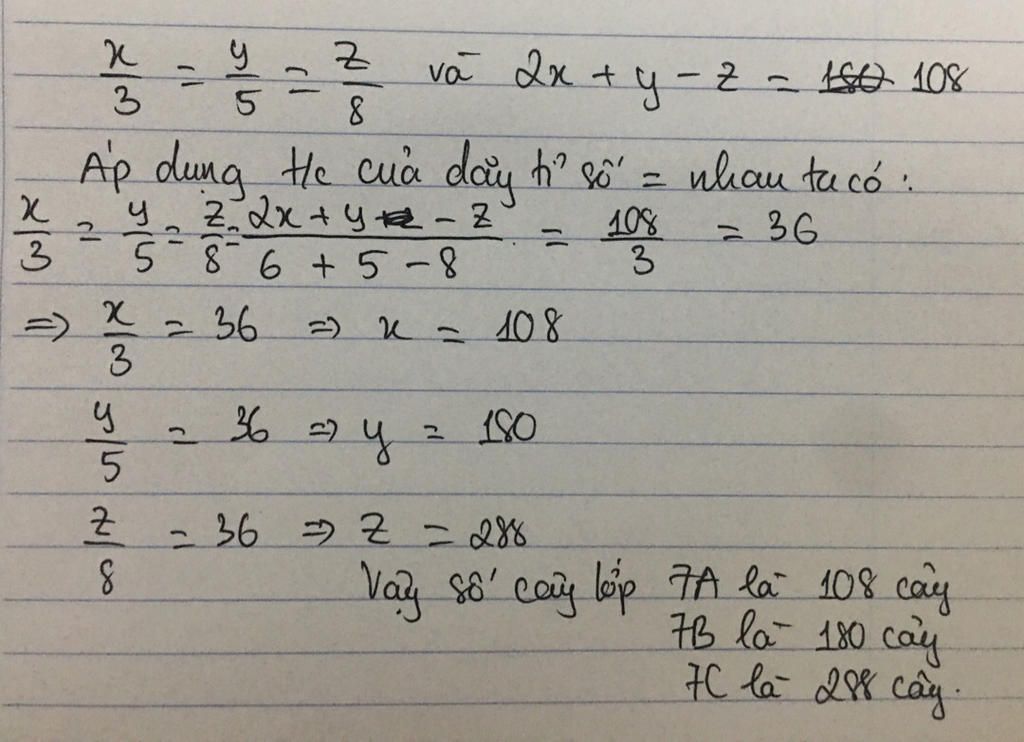 x/3 = y/5 = z/8 và 2x + y - z = 180 108
Áp dụng t/c của dãy tỉ số = nhau ta có :
x/3 = y/5 = z/8 = (2x + y - z)/(6 + 5 - 8) = 108/3 = 36
=> x/3 = 36 => x = 108
y/5 = 36 => y = 180
z/8 = 36 => z = 288
Vậy số cây lớp 7A là 108 cây
7B là 180 cây
7C là 288 cây.